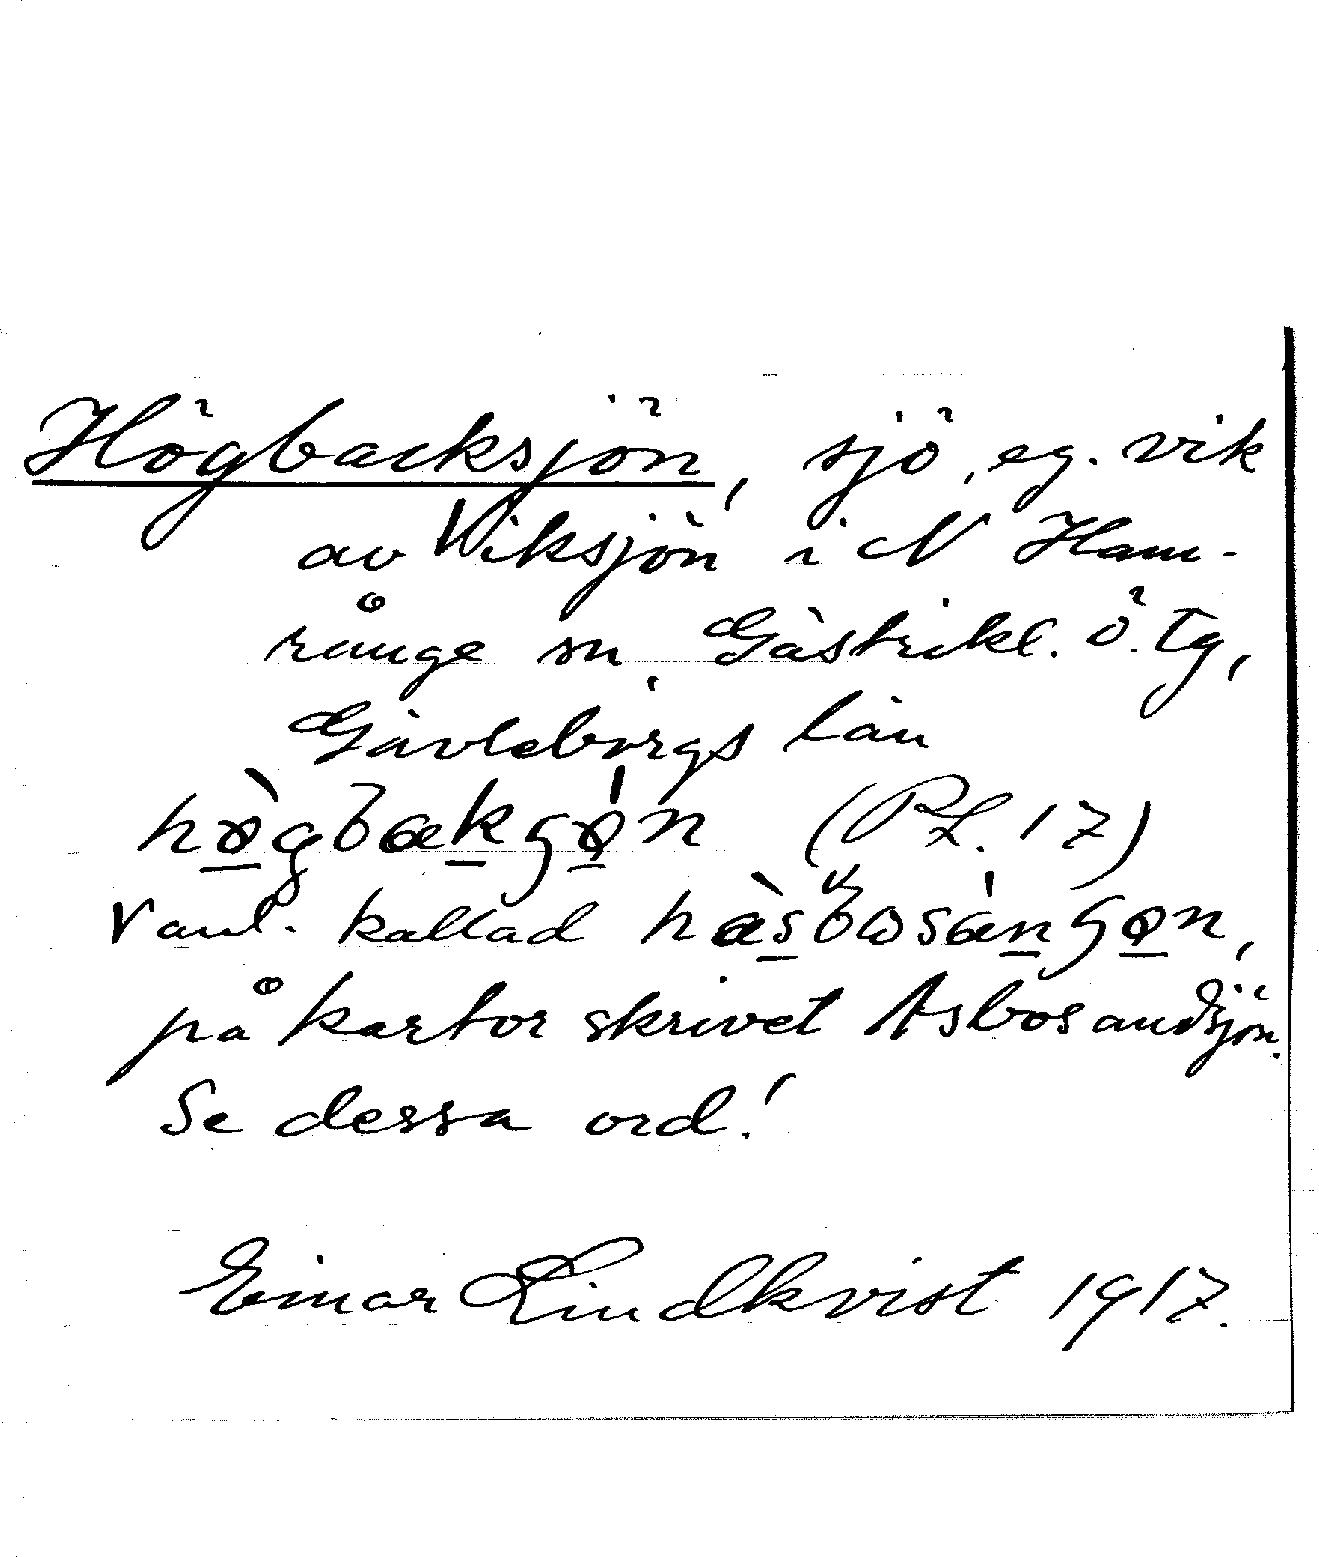 Högbacksjön, sjö, eg. vik
av Viksjön i N Ham-
rånge sn Gästrikl. ö. tg,
Gävleborgs län
hø̀gbakʂø̍n (PL. 17)
Vanl. kallad
på kartor skrivet Asbosandsjön.
Se dessa ord!
Einar Lindkvist 1917.